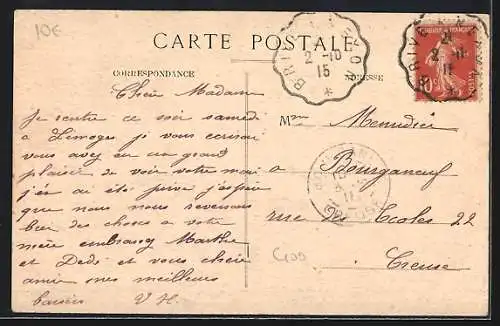 10€
CARTE POSTALE
CORRESPONDANCE
ADRESSE
BRIVE
2 -10
15
*
10
Chère Madame
Je rentre ce soir samedi
a Limoges je vous ecrirai
vous avez eu un grand
plaisir de voir votre mari
j'en ai été privé j'espère
que nous nous reverrons
bien des choses a votre
mère embrassez Marthe
et Dédé et vous chère
amie mes meilleurs
baisers V H.
Mme
Bourganeuf
rue des Ecoles 22
Creuse